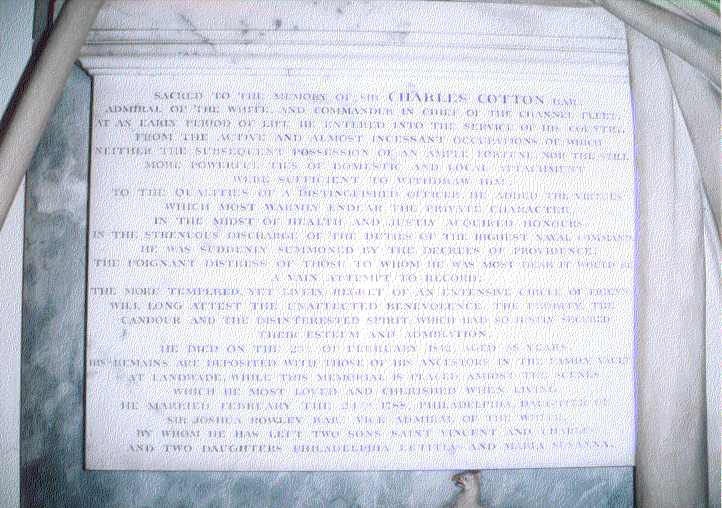 SACRED TO THE MEMORY OF SIR CHARLES COTTON BAR.
ADMIRAL OF THE WHITE, AND COMMANDER IN CHIEF OF THE CHANNEL FLEET.
AT AN EARLY PERIOD OF LIFE HE ENTERED INTO THE SERVICE OF HIS COUNTRY,
FROM THE ACTIVE AND ALMOST INCESSANT OCCUPATIONS OF WHICH
NEITHER THE SUBSEQUENT POSSESSION OF AN AMPLE FORTUNE, NOR THE STILL
MORE POWERFUL TIES OF DOMESTIC AND LOCAL ATTACHMENT
WERE SUFFICIENT TO WITHDRAW HIM.
TO THE QUALITIES OF A DISTINGUISHED OFFICER, HE ADDED THE VIRTUES
WHICH MOST WARMLY ENDEAR THE PRIVATE CHARACTER.
IN THE MIDST OF HEALTH AND JUSTLY ACQUIRED HONOURS,
IN THE STRENUOUS DISCHARGE OF THE DUTIES OF THE HIGHEST NAVAL COMMAND
HE WAS SUDDENLY SUMMONED BY THE DECREES OF PROVIDENCE.
THE POIGNANT DISTRESS OF THOSE TO WHOM HE WAS MOST DEAR IT WOULD BE
A VAIN ATTEMPT TO RECORD:
THE MORE TEMPERED, YET LIVELY REGRET OF AN EXTENSIVE CIRCLE OF FRIENDS
WILL LONG ATTEST THE UNAFFECTED BENEVOLENCE, THE PROBITY, THE
CANDOUR AND THE DISINTERESTED SPIRIT, WHICH HAD SO JUSTLY SECURED
THEIR ESTEEM AND ADMIRATION.
HE DIED ON THE OF FEBRUARY 1812, AGED 58 YEARS.
HIS REMAINS ARE DEPOSITED WITH THOSE OF HIS ANCESTORS IN THE FAMILY VAULT
AT LANDWADE, WHILE THIS MEMORIAL IS PLACED AMIDST THE SCENES
WHICH HE MOST LOVED AND CHERISHED WHEN LIVING.
HE MARRIED FEBRUARY THE 1788, PHILADELPHIA, DAUGHTER OF
SIR JOSHUA ROWLEY BART. VICE ADMIRAL OF THE WHITE,
BY WHOM HE HAS LEFT TWO SONS SAINT VINCENT AND CHARLES,
AND TWO DAUGHTERS PHILADELPHIA LETITIA AND MARIA SUSANNA.